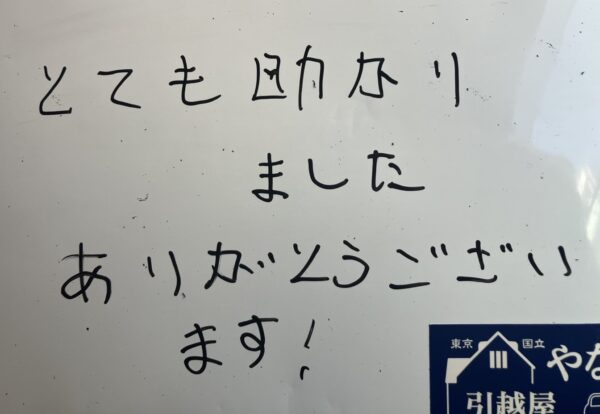 とても助かり
ました
ありがとうござい
ます!
東京 国立
やな
引越屋